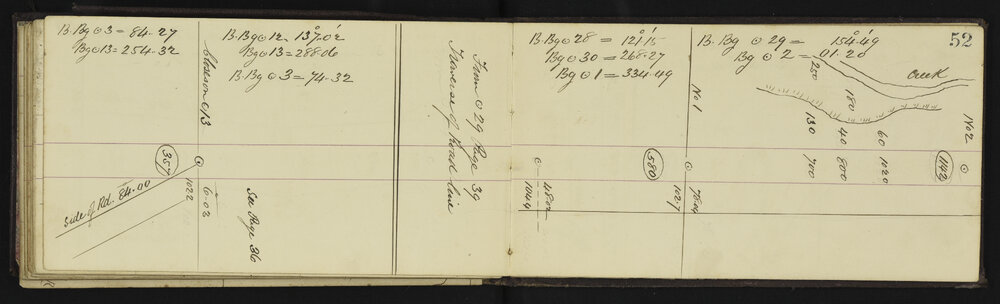 B. Bg ⊙ 3 = 84.27
Bg ⊙ 13 = 254.32
B. Bg ⊙ 12 = 137.02
Bg ⊙ 13 = 288.06
B. Bg ⊙ 3 = 74.32
Closes on ⊙ 13
357
1022
6.02
Side of Rd. 84.00
See Page 36
From ⊙ 29 Page 39
Traverse of Road line
B. Bg ⊙ 28 = 121°15'
Bg ⊙ 30 = 268.27
Bg ⊙ 1 = 334.49
580
1044
No 1
102.7
78.04
B. Bg ⊙ 29 = 154°49'
Bg ⊙ 2 = 01.20
52
Creek
250
180
130
40
60
700
800
1020
No 2
1142